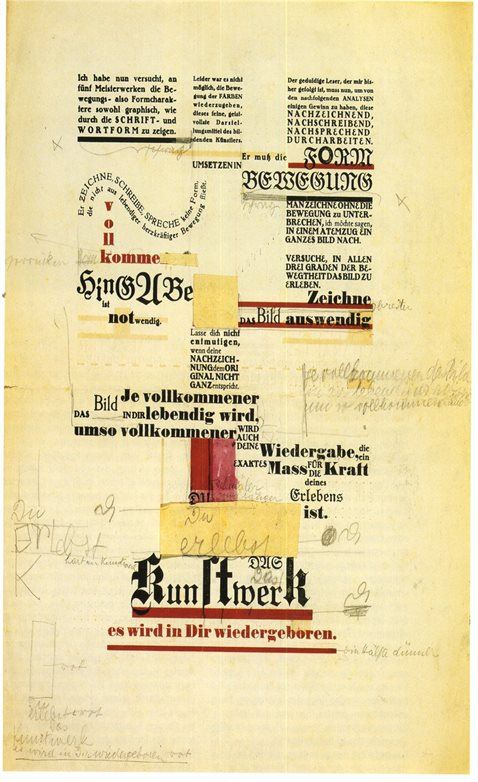 Ich habe nun versucht, an
fünf Meisterwerken die Be-
wegungs- also Formcharak-
tere sowohl graphisch, wie
durch die SCHRIFT- und
WORTFORM zu zeigen.
Leider war es nicht
möglich, die Bewe-
gung der FARBEN
wiederzugeben,
dieses feine, geist-
vollste Darstel-
lungsmittel des bil-
denden Künstlers.
Der geduldige Leser, der mir bis-
her gefolgt ist, muss nun, um von
den nachfolgenden ANALYSEN
einigen Gewinn zu haben, diese
NACHZEICHNEND,
NACHSCHREIBEND,
NACHSPRECHEND
DURCHARBEITEN.
UMSETZEN IN
Er muß die FORM
BEWEGUNG
Er ZEICHNE, SCHREIBE, SPRECHE keine Form,
die nicht aus lebendiger herzkräftiger Bewegung fließt.
voll
komme
HinGABe
ist
notwendig.
MAN ZEICHNE OHNE DIE
BEWEGUNG zu UNTER-
BRECHEN, ich möchte sagen,
IN EINEM ATEMZUG EIN
GANZES BILD NACH.
VERSUCHE, IN ALLEN
DREI GRADEN DER BE-
WEGTHEIT DAS BILD ZU
ERLEBEN.
Zeichne
DAS Bild auswendig
breiter
Lasse dich nicht
entmutigen,
wenn deine
NACHZEICH-
NUNG dem ORI
GINAL NICHT
GANZ entspricht.
Je vollkommener
DAS Bild IN DIR lebendig wird,
umso vollkommener WIRD
AUCH
DEINE
EXAKTES
Wiedergabe, die
ein
Mass FÜR
DIE Kraft
deines
Erlebens
ist.
DU
Du
erlebst
Du
Erlebst
DAS
Das
Kunstwerk
es wird in Dir wiedergeboren.
rot
Kunstwerk
es wird in Dir wiedergeboren rot